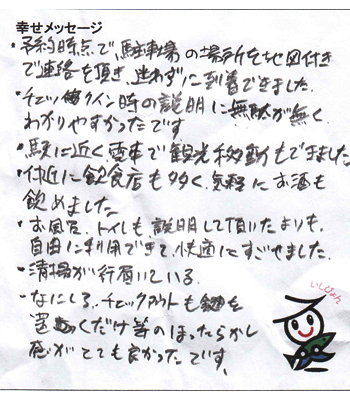 幸せメッセージ
・予約時点で駐車場の場所を地図付き
で連絡を頂き、迷わずに到着できました。
・チェックイン時の説明に無駄が無く
わかりやすかったです
・駅に近く、電車で観光移動もできました
・付近に飲食店も多く、気軽にお酒も
飲めました
・お風呂、トイレも、説明して頂いたよりも、
自由に利用できて、快適にすごせました。
・清掃が行届いている。
・なにしろ、チェックアウトも鍵を
置くだけ等のほったらかし
感がとても良かったです。
いしぴょん